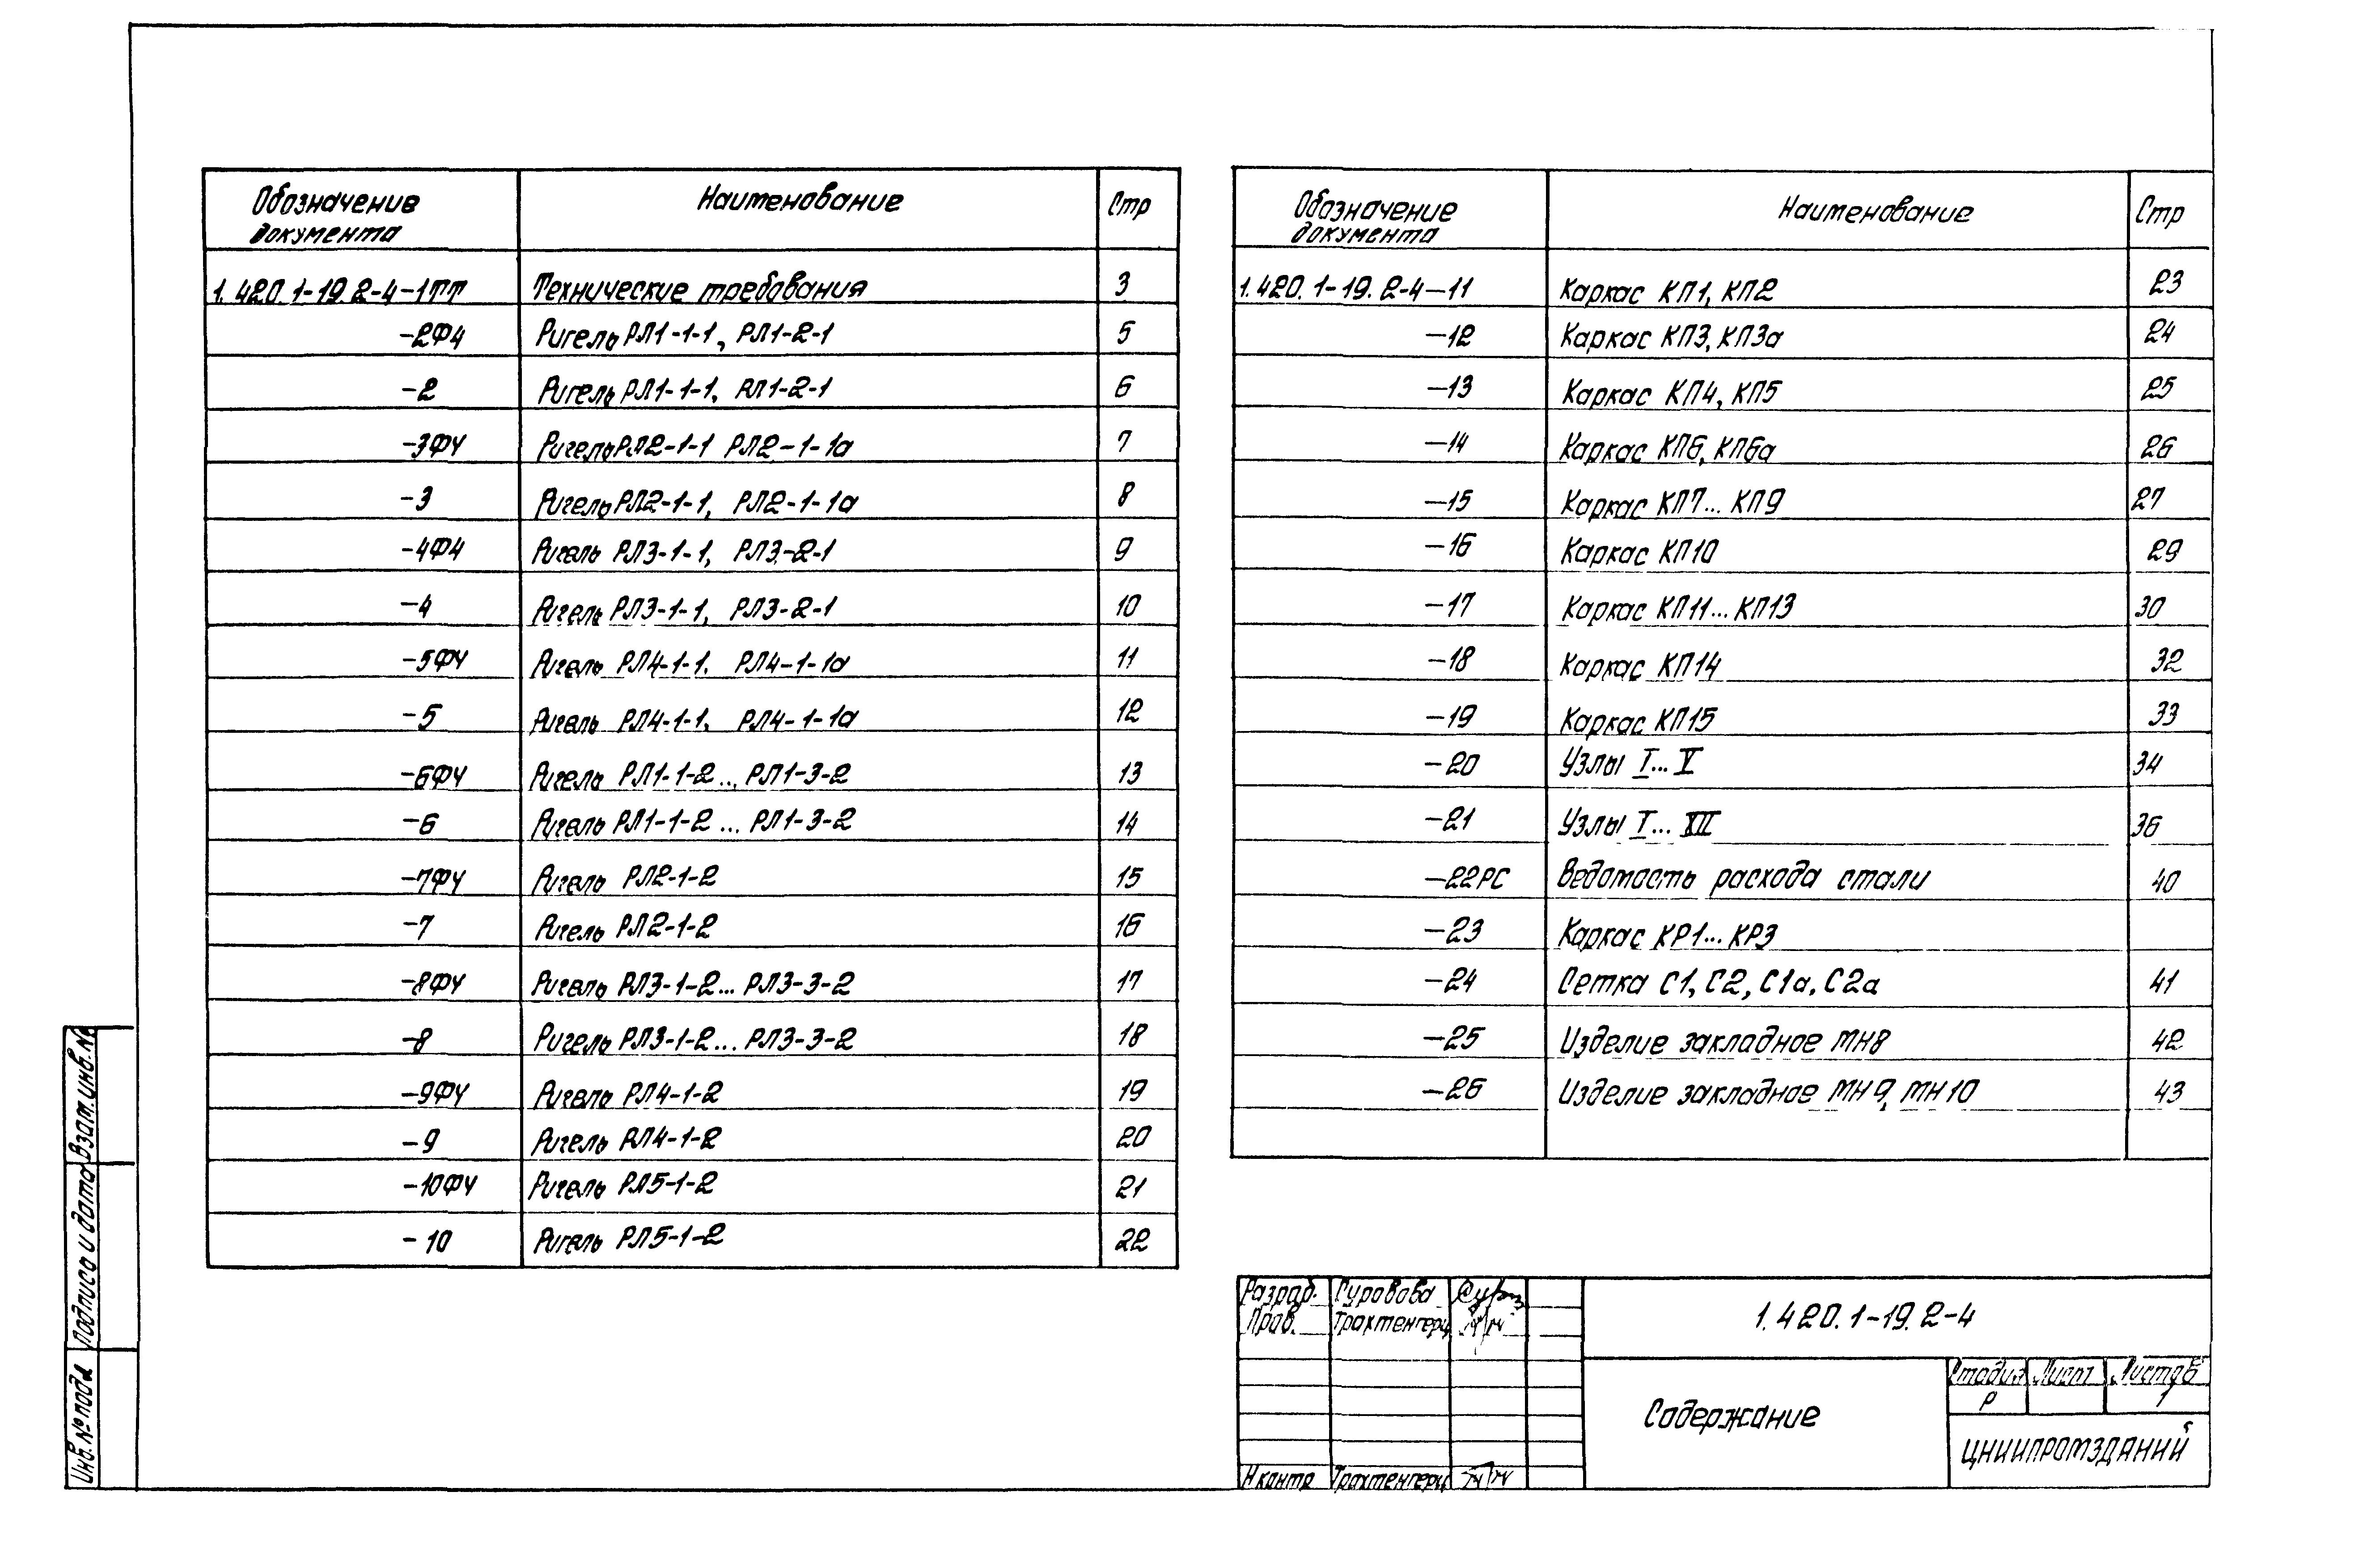 Обозначение документа Наименование Стр
1.420.1-19.2-4-1ТТ Технические требования 3
-2ФЧ Ригель РЛ1-1-1, РЛ1-2-1 5
-2 Ригель РЛ1-1-1, РЛ1-2-1 6
-3ФЧ Ригель РЛ2-1-1 РЛ2-1-1а 7
-3 Ригель РЛ2-1-1, РЛ2-1-1а 8
-4ФЧ Ригель РЛ3-1-1, РЛ3-2-1 9
-4 Ригель РЛ3-1-1, РЛ3-2-1 10
-5ФЧ Ригель РЛ4-1-1. РЛ4-1-1а 11
-5 Ригель РЛ4-1-1. РЛ4-1-1а 12
-6ФЧ Ригель РЛ1-1-2... РЛ1-3-2 13
-6 Ригель РЛ1-1-2... РЛ1-3-2 14
-7ФЧ Ригель РЛ2-1-2 15
-7 Ригель РЛ2-1-2 16
-8ФЧ Ригель РЛ3-1-2... РЛ3-3-2 17
-8 Ригель РЛ3-1-2... РЛ3-3-2 18
-9ФЧ Ригель РЛ4-1-2 19
-9 Ригель РЛ4-1-2 20
-10ФЧ Ригель РЛ5-1-2 21
-10 Ригель РЛ5-1-2 22
Обозначение документа Наименование Стр
1.420.1-19.2-4-11 Каркас КП1, КП2 23
-12 Каркас КП3, КП3а 24
-13 Каркас КП4, КП5 25
-14 Каркас КП6, КП6а 26
-15 Каркас КП7... КП9 27
-16 Каркас КП10 29
-17 Каркас КП11... КП13 30
-18 Каркас КП14 32
-19 Каркас КП15 33
-20 Узлы I... V 34
-21 Узлы I... XII 36
-22РС Ведомость расхода стали 40
-23 Каркас КР1... КР3
-24 Сетка С1, С2, С1а, С2а 41
-25 Изделие закладное МН8 42
-26 Изделие закладное МН9, МН10 43
Разраб. Суровова
Пров. Трахтенгерц
Н контр Трахтенгерц
1.420.1-19.2-4
Содержание
Стадия Лист Листов
Р 1
ЦНИИПРОМЗДАНИЙ
Взам. инв. №
Подпись и дата
Инв. № подл